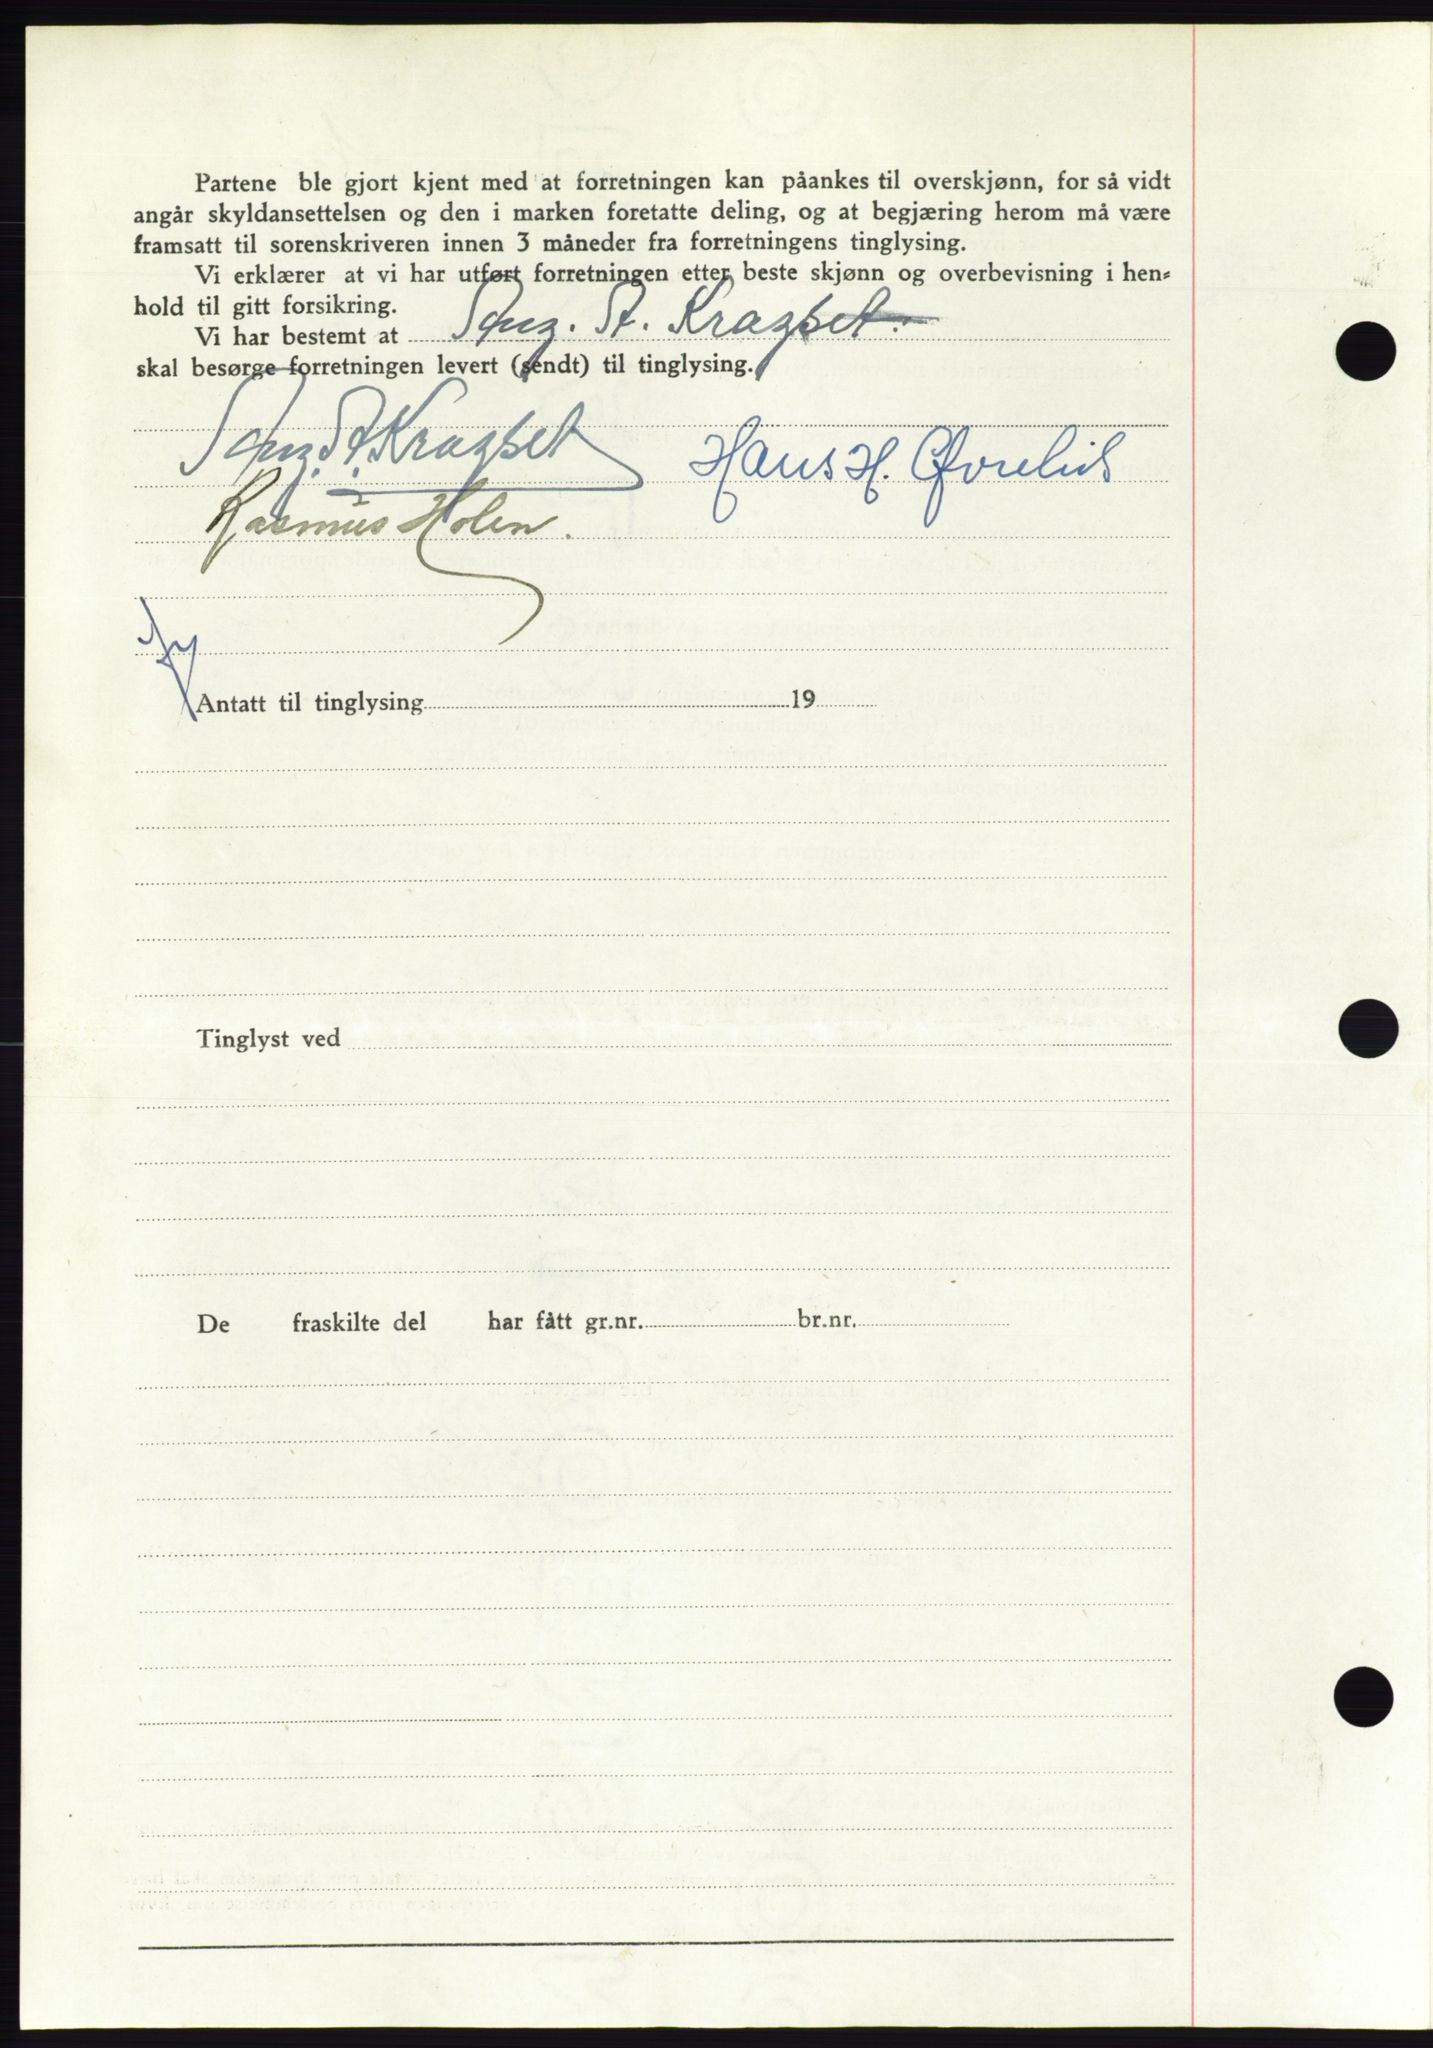 Partene ble gjort kjent med at forretningen kan påankes til overskjønn, for så vidt
angår skyldansettelsen og den i marken foretatte deling, og at begjæring herom må være
framsatt til sorenskriveren innen 3 måneder fra forretningens tinglysing.
Vi erklærer at vi har utført forretningen etter beste skjønn og overbevisning i hen-
hold til gitt forsikring.
Vi har bestemt at St. Kragset
skal besørge forretningen levert (sendt) til tinglysing.
St. Kragset Hans H.
Rasmus Holen.
Antatt til tinglysing 19
Tinglyst ved
De fraskilte del har fått gr.nr. br.nr.